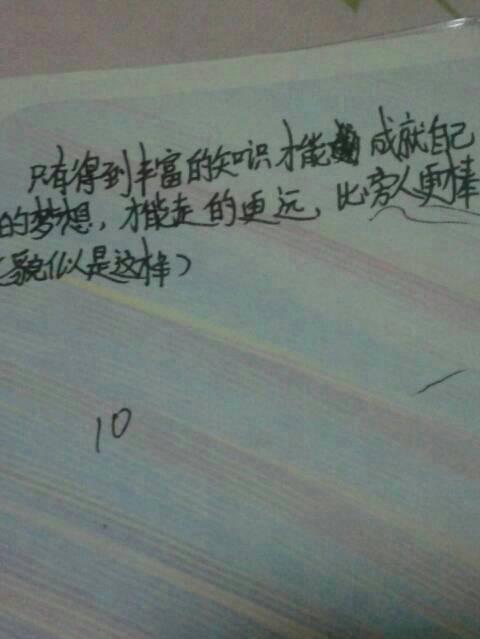 只有得到丰富的知识才能成就自己
的梦想，才能走的更远，比旁人更棒
（貌似是这样）
10